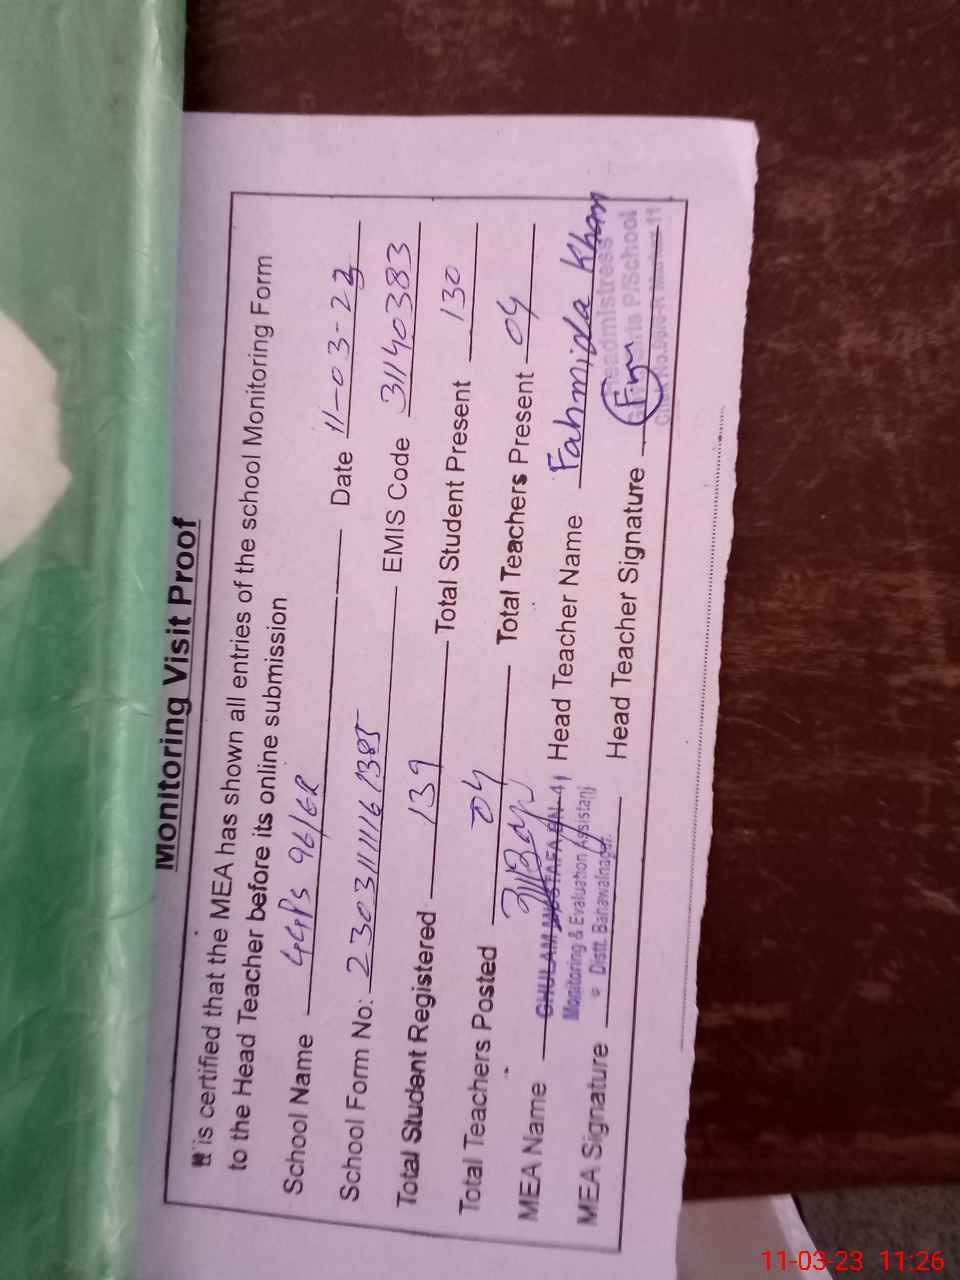 Monitoring Visit Proof
It is certified that the MEA has shown all entries of the school Monitoring Form
to the Head Teacher before its online submission
School Name GGPS 96/6R Date 11-03-23
School Form No: 230311116 1385 EMIS Code 31140383
Total Student Registered 139 Total Student Present 130
Total Teachers Posted 04 Total Teachers Present 04
MEA Name GHULAM MUSTAFA Head Teacher Name Fahmida Khan
Monitoring & Evaluation Assistant
Distt. Bahawalnagar.
MEA Signature Head Teacher Signature
Headmistress
P/School
11-03-23 11:26